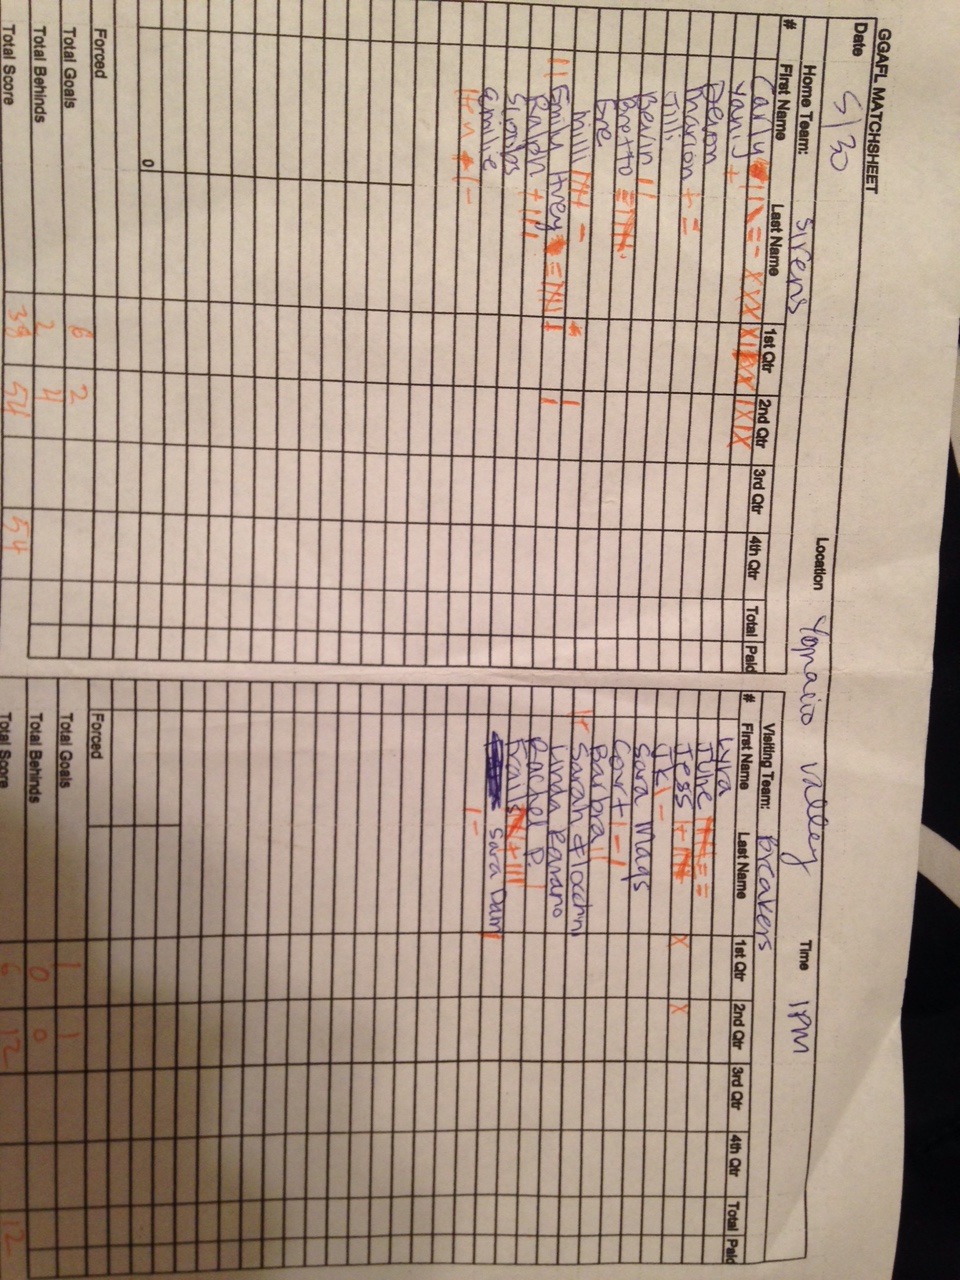 GGAFL MATCHSHEET
Date 5/30 Location Ygnacio valley Time 1PM
Home Team: Sirens
# First Name Last Name 1st Qtr 2nd Qtr 3rd Qtr 4th Qtr Total Paid
Carly
Yani
Devon
Marion
Jilli
Bevin
Bretto
Bre
Milli
Emily
Ralph
Simples
emilie
0
Forced
Total Goals 6 2
Total Behinds 2 4
Total Score 38 54 54
Visiting Team: Breakers
# First Name Last Name 1st Qtr 2nd Qtr 3rd Qtr 4th Qtr Total Paid
Lyra
Julie
Jess X X
JK
Sara Mags
Court
Barbra
Sarah
Linda
Rachel P.
Kails
Sara Dam
Forced
Total Goals 1 1
Total Behinds 0 0
Total Score 6 12 12